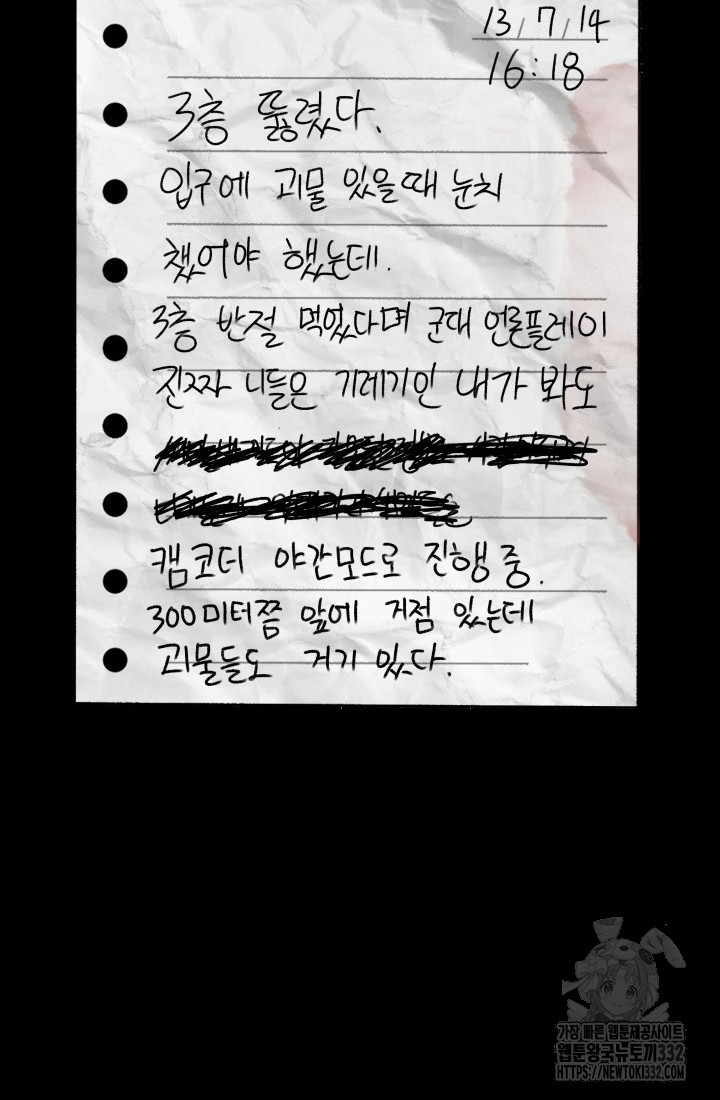 13/7/14
16:18
3층 뚫렸다.
입구에 괴물 있을때 눈치
챘어야 했는데.
3층 반절 먹었다며 군대 언론플레이
진짜 니들은 기레기인 내가 봐도
캠코더 야간모드로 진행 중.
300미터쯤 앞에 거점 있는데
괴물들도 거기 있다.
가장 빠른 웹툰제공사이트
웹툰왕국뉴토끼332
HTTPS://NEWTOKI332.COM